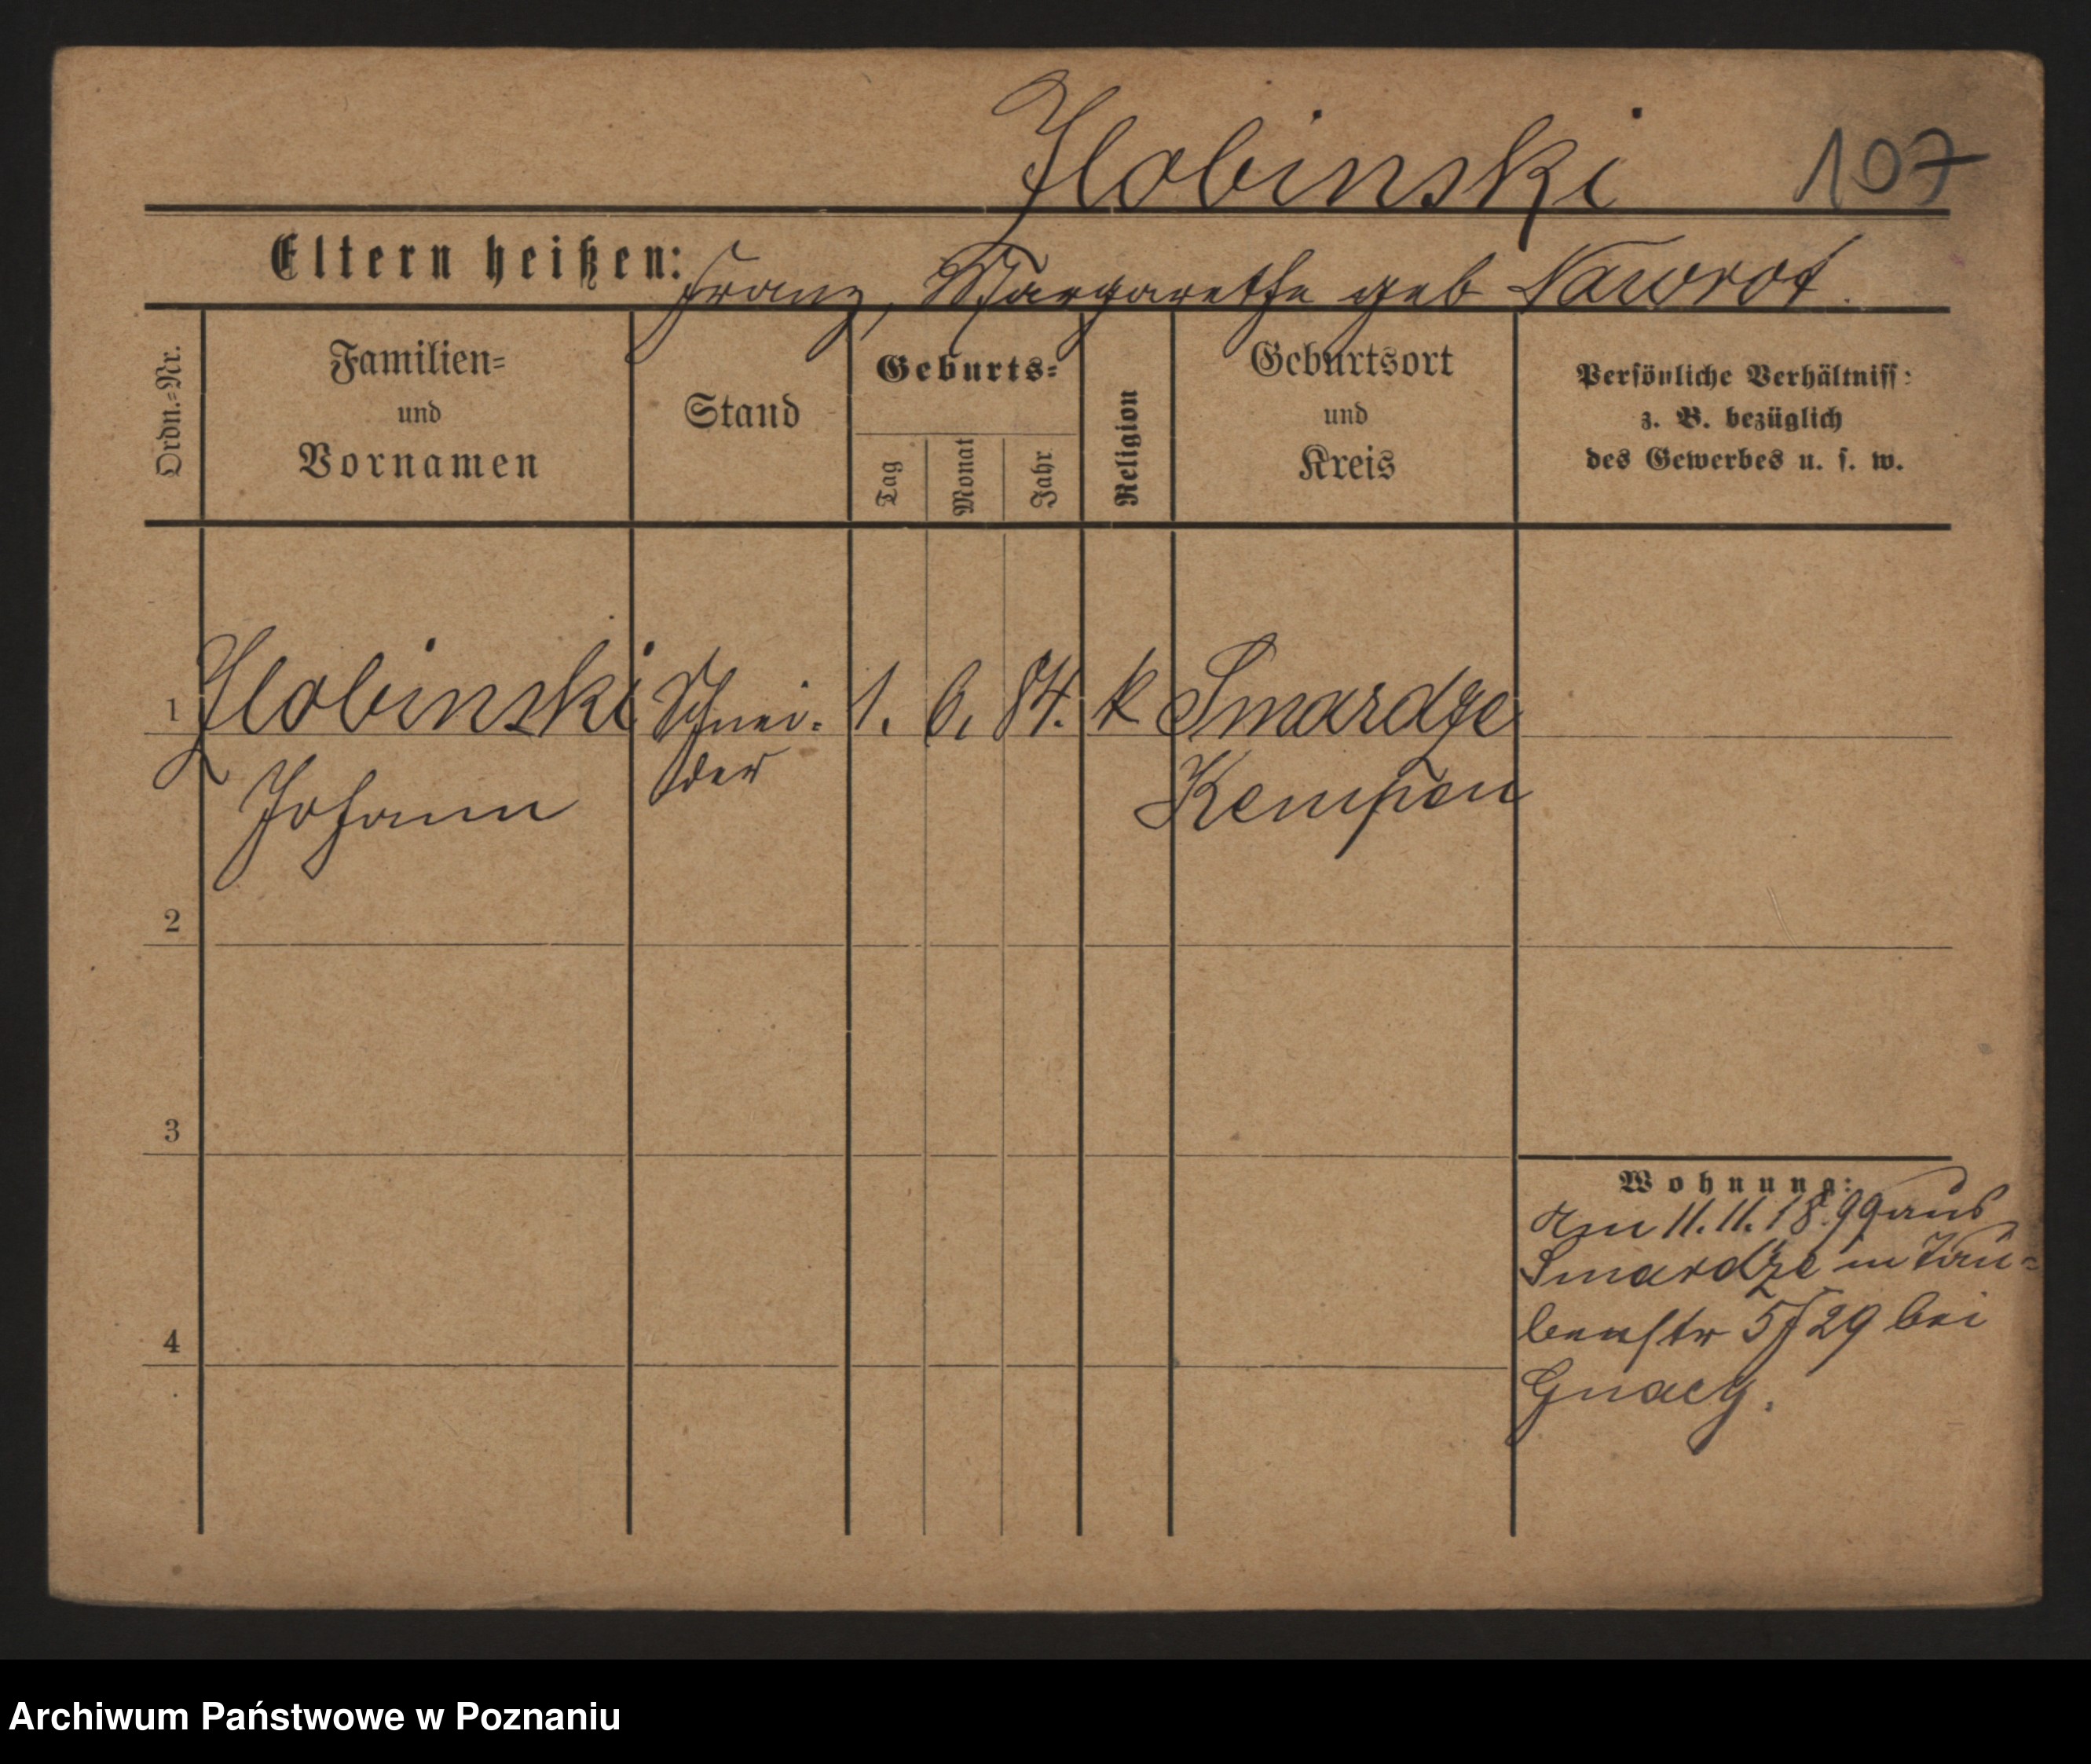 Zlobinski 107
Eltern heißen: Franz, Margarethe geb Nawrot.
Ordn.-Nr.
Familien-
und
Vornamen
Stand
Geburts-
Tag
Monat
Jahr
Religion
Geburtsort
und
Kreis
Persönliche Verhältniss:
z. B. bezüglich
des Gewerbes u. s. w.
1 Zlobinski Schnei- 1. 6. 84. k Smardze
Johann der Kempen
2
3
4
Wohnung:
Am 11.11.18.99 aus
Smardze in Tau-
benstr 5 f 29 bei
Archiwum Państwowe w Poznaniu